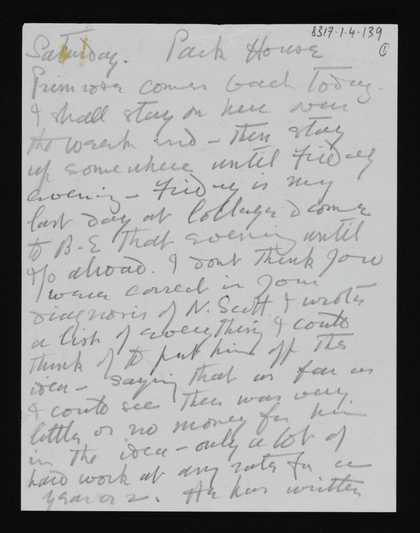 8317·1·4·139
1
Saturday. Park House
Primrose comes back today.
I shall stay on here over
the week end – then stay
up somewhere until Friday
evening – Friday is my
last day at College I come
to B-E that evening until
I go abroad. I dont think you
were correct in your
diagnosis of N. Scott I wrote
a list of everything I could
think of to put him off the
idea – saying that as far as
I could see there was very
little or no money for him
in the idea – only a lot of
hard work at any rate for a
year or 2. He has written